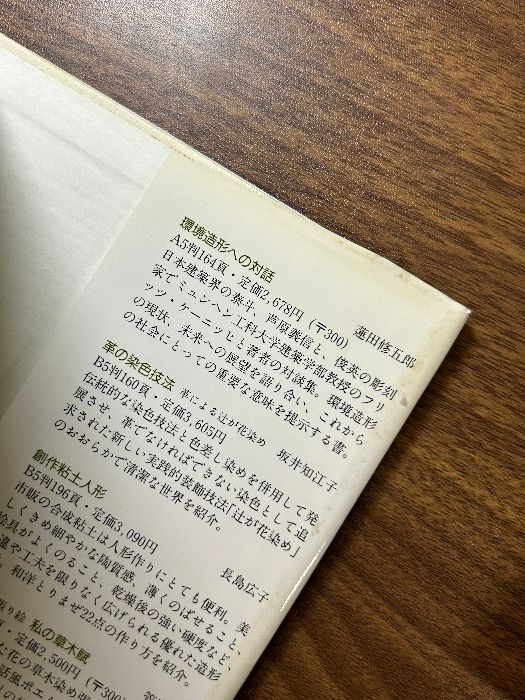 環境造形への対話
A5判164頁・定価2,678円（〒300） 蓮田修五郎
日本建築界の泰斗、芦原義信と、俊英の彫刻
家でミュンヘン工科大学建築学部教授のフリ
ッツ・ケーニッヒと著者の対談集。環境造形
の現状、未来への展望を語り合い、これから
の社会にとっての重要な意味を提示する書。
革の染色技法 革による辻が花染め 坂井知江子
B5判160頁・定価3,605円
伝統的な染色技法と色差し染めを併用して発
展させ、革でなければできない染色として追
求された新しい実践的装飾技法「辻が花染め」
のおおらかで清潔な世界を紹介。
創作粘土人形 長島広子
B5判196頁・定価3,090円
市販の合成粘土は人形作りにとても便利。美
しくきめ細やかな陶質感、薄くのばせること、
絵具がよくのること、乾燥後の強い硬度など
や工夫を限りなく広げられる優れた造形
和洋とりまぜ22点の作り方を紹介。
り絵 私の草木賦
頁・定価2,500円（〒300）
た花の草木染め
話風ポエ